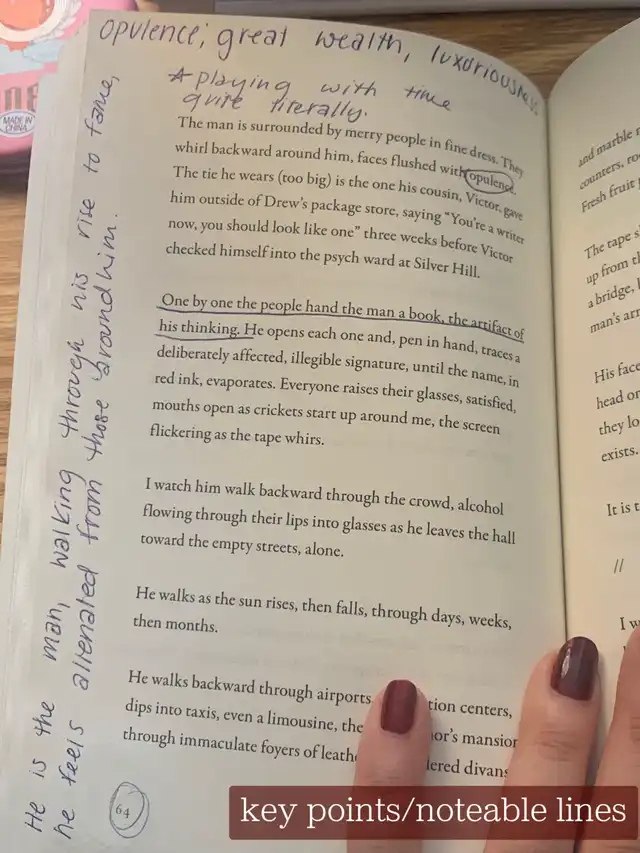 opulence; great wealth, luxuriousness
* playing with time
quite literally.
He is the man, walking through his rise to fame,
he feels alienated from those around him.
MADE IN
CHINA
The man is surrounded by merry people in fine dress. They
whirl backward around him, faces flushed with opulence.
The tie he wears (too big) is the one his cousin, Victor, gave
him outside of Drew's package store, saying "You're a writer
now, you should look like one" three weeks before Victor
checked himself into the psych ward at Silver Hill.
One by one the people hand the man a book, the artifact of
his thinking. He opens each one and, pen in hand, traces a
deliberately affected, illegible signature, until the name, in
red ink, evaporates. Everyone raises their glasses, satisfied,
mouths open as crickets start up around me, the screen
flickering as the tape whirs.
I watch him walk backward through the crowd, alcohol
flowing through their lips into glasses as he leaves the hall
toward the empty streets, alone.
He walks as the sun rises, then falls, through days, weeks,
then months.
He walks backward through airports tion centers,
dips into taxis, even a limousine, the or's mansion
through immaculate foyers of leath ered divans
64
and marble
counters,
Fresh fruit
The tape
up from
a bridge,
man's
His face
head or
they lo
exists.
It is
//
I
key points/noteable lines